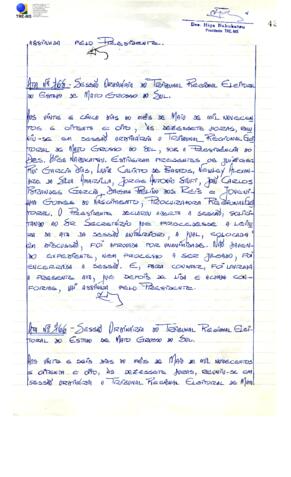 TRE-MS
Des. Higa Nabukatsu
Presidente TRE-MS
ASSINADA PELO PRESIDENTE.
SESSÃO ORDINÁRIA DO TRIBUNAL REGIONAL ELEITORAL
DO ESTADO DE MATO GROSSO DO SUL.
AOS VINTE E CINCO DIAS DO MÊS DE MAIO DE MIL NOVECEN-
TOS E OITENTA E OITO, ÀS DEZESSETE HORAS, REU-
NIU-SE EM SESSÃO ORDINÁRIA O TRIBUNAL REGIONAL ELEI-
TORAL DE MATO GROSSO DO SUL, SOB A PRESIDÊNCIA DO
DES. HIGA NABUKATSU. ESTIVERAM PRESENTES OS JUÍZES
RUI GARCIA DIAS, LUIZ CALIXTO DE BASTOS,
JORGE ANTONIO JOSÉ CARLOS
GARCIA, DOS REIS E
GOMES DO NASCIMENTO, PROCURADORA REGIONAL
ELEITORAL. O PRESIDENTE DECLAROU ABERTA A SESSÃO, SOLICI-
TANDO AO SR. SECRETÁRIO QUE PROCEDESSE A LEITU-
RA DA ATA DA SESSÃO ANTERIOR, A QUAL, COLOCADA
EM DISCUSSÃO, FOI APROVADA POR UNANIMIDADE. NÃO HAVEN-
DO EXPEDIENTE, NEM PROCESSO A SER JULGADO, FOI
ENCERRADA A SESSÃO. E, PARA CONSTAR, FOI LAVRADA
A PRESENTE ATA, QUE DEPOIS DE LIDA E ACHADA CON-
FORME, VAI ASSINADA PELO PRESIDENTE.
SESSÃO ORDINÁRIA DO TRIBUNAL REGIONAL ELEI-
TORAL DO ESTADO DE MATO GROSSO DO SUL.
AOS VINTE E SEIS DIAS DO MÊS DE MAIO DE MIL NOVECENTOS
E OITENTA E OITO, ÀS DEZESSETE HORAS, REUNIU-SE EM
SESSÃO ORDINÁRIA O TRIBUNAL REGIONAL ELEITORAL DE MATO